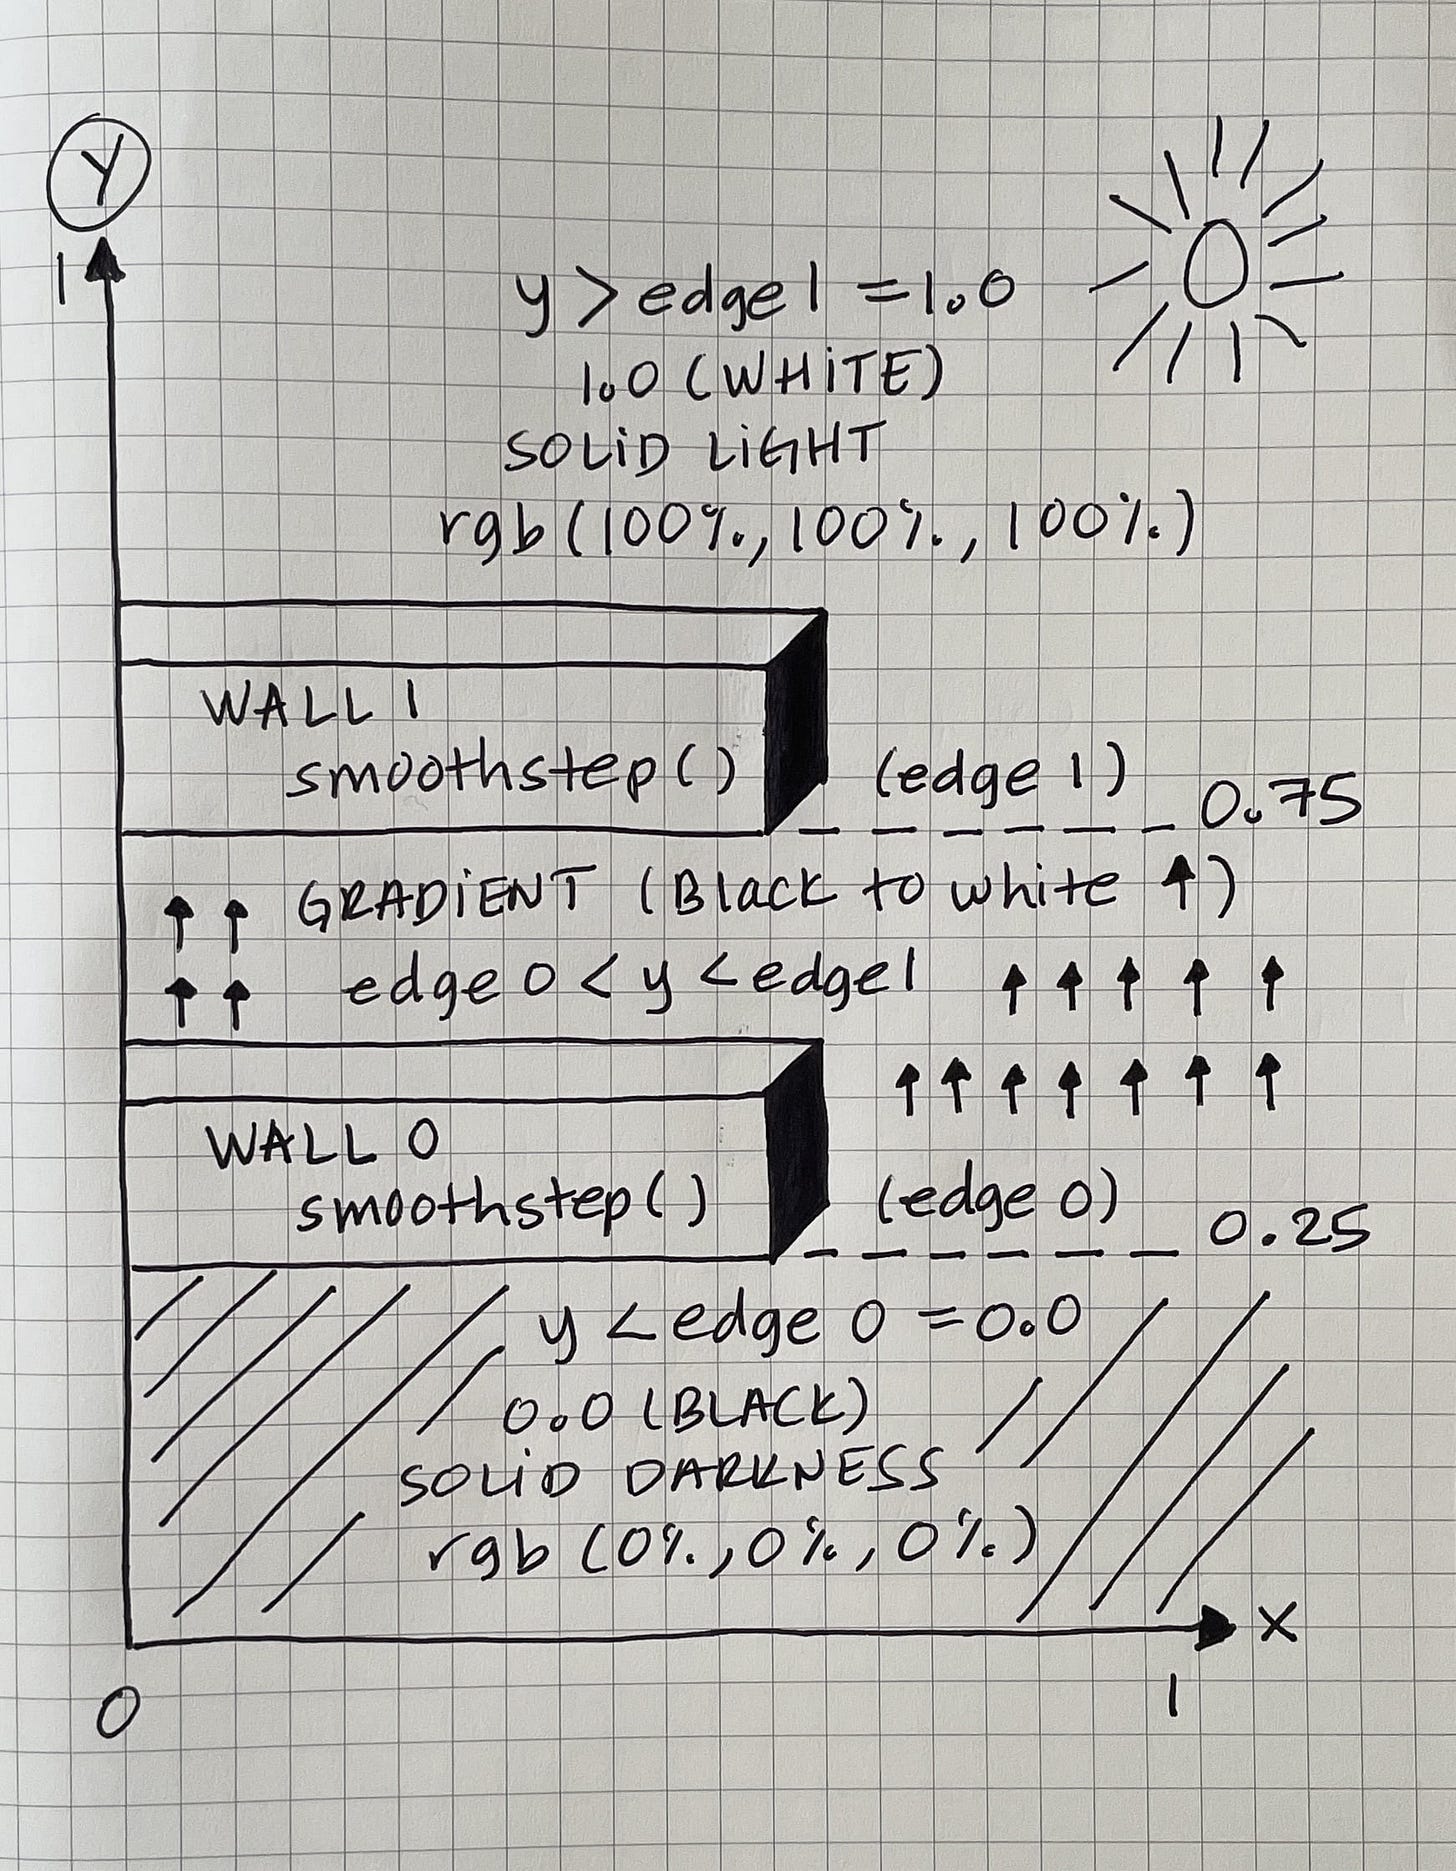 Y
1
y > edge 1 = 1.0
1.0 (WHiTE)
SOLiD LiGHT
rgb (100%, 100%, 100%)
WALL 1
smoothstep()
(edge 1)
0.75
GRADiENT (Black to white ↑)
edge 0 < y < edge 1
WALL 0
smoothstep()
(edge 0)
0.25
y < edge 0 = 0.0
0.0 (BLACK)
SOLiD DARKNESS
rgb (0%, 0%, 0%)
X
0
1